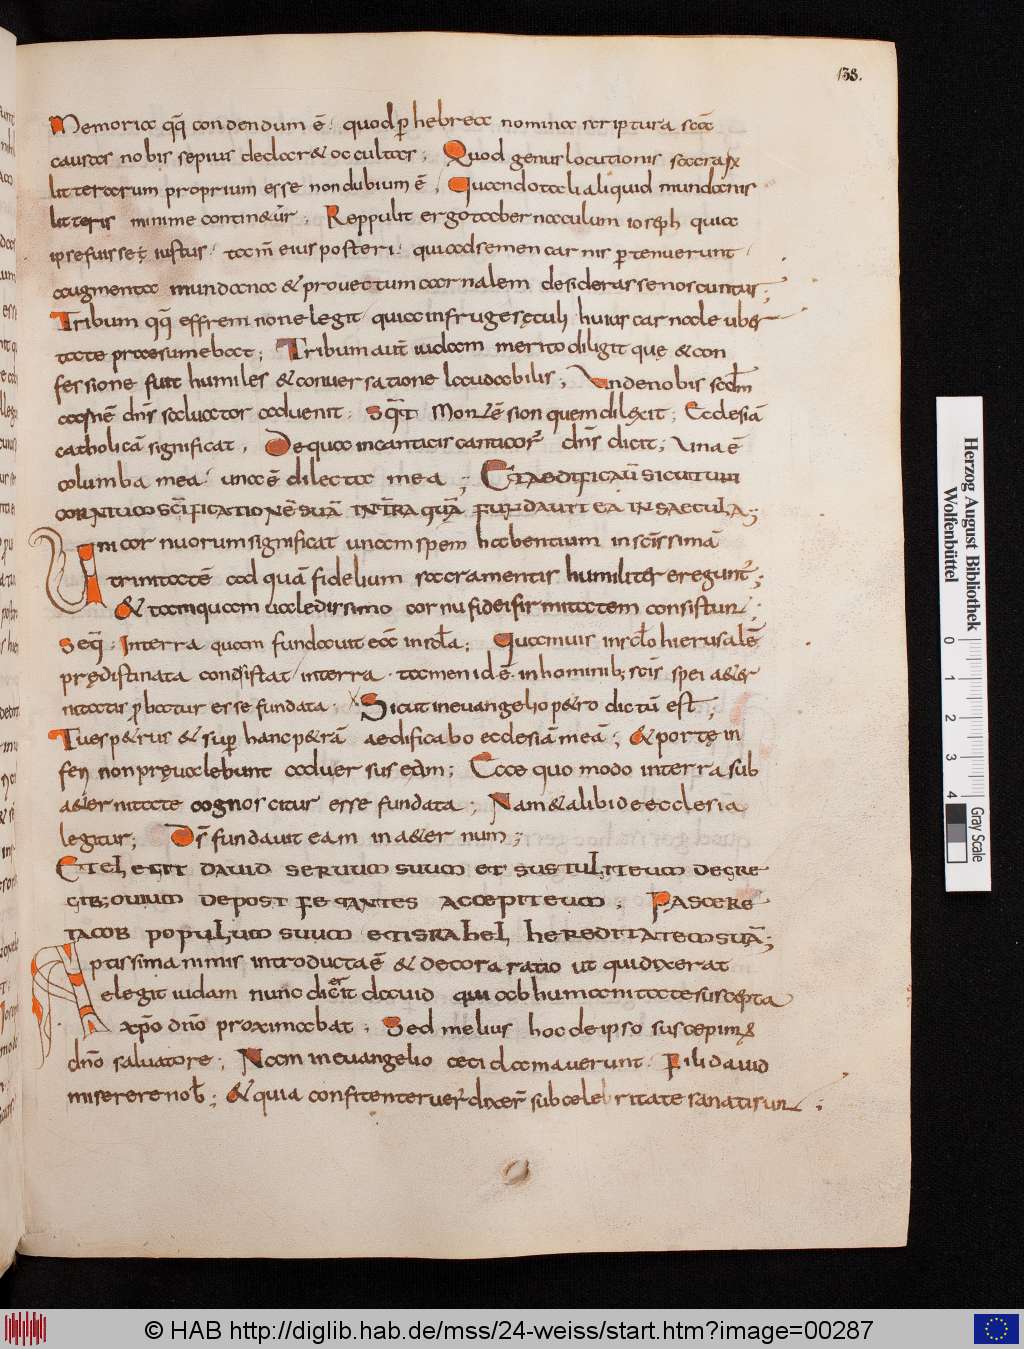 138.
Memoriae qq̄ condendum ē· quod ꝑ hebrea nomina scriptura sc̄a
causas nobis sepius declarat occultas; Quod genus locutionis sacrarū
litterarum proprium esse non dubium ē; Quando tale aliquid mundanis
litteris minime continet̄ur; Reppulit ergo tabernaculum ioseph quia
ipse fuisset iustus· tam̄ eius posteri· qui ad semen carnis ꝑtenuerunt·
augmenta mundana & prouectum carnalem desiderasse noscuntur;
Tribum qq̄ effrem non elegit quia in fruge sęculi huius carnale uber
tate praesumebat; Tribum aut̄ iudam merito diligit quę & con
fessione fuit humiles & conuersatione laudabilis; Unde nobis scd̄m
carnē dn̄s saluator aduenit; Seq̄t Montē sion quem dilexit; Ecclesiā
catholicā significat; De qua in canticis canticor̄ dn̄s dicit; Una ē
columba mea· una ē dilecta mea; Et aedificauit sicut uni
cornium sc̄ificationē suā in terra quā fundauit ea in saecula;
Unicornuorum significat unam spem habentium in sc̄issimā
trinitatē ad quā fidelium sacramentis humiliter eregunt̄;
& tamquam ualedissimo cornu fidei firmitatem consistunt;
Seq̄· Interra quam fundauit eā in sc̄la; Quamuis in sc̄lo hierusalē
prędistinata consistat in terra· tamen id ē· in hominib; sc̄is spei aeter
nitatis ꝓbatur esse fundata; Sicut in euangelio petro dictū est;
Tu es petrus & suꝑ hanc petrā aedificabo ecclesiā meā; & portę in
feri non pręualebunt aduersus eam; Ecce quomodo in terra sub
aeternitate cognoscitur esse fundata; Nam & alibi de ecclesia
legitur; Ds̄ fundauit eam in aeternum;
Et elegit dauid seruum suum et sustulit eum de gre
gib; ouium de post fetantes accepit eum; Pascere
iacob populum suum et israhel hereditatem suā;
Aptissima nimis introducta ē & decora ratio ut qui dixerat
elegit iudam nunc dicerit dauid qui ab humanitate suscepta
xp̄o dn̄o proximabat; Sed melius hoc de ipso suscepimus
dn̄o saluatore; Nam in euangelio ceci clamauerunt· Fili dauid
miserere nob̄; & quia confitenter uer̄ dixer̄ sub celebritate sanati sunt;
Herzog August Bibliothek
Wolfenbüttel
0 1 2 3 4
Gray Scale
© HAB http://diglib.hab.de/mss/24-weiss/start.htm?image=00287